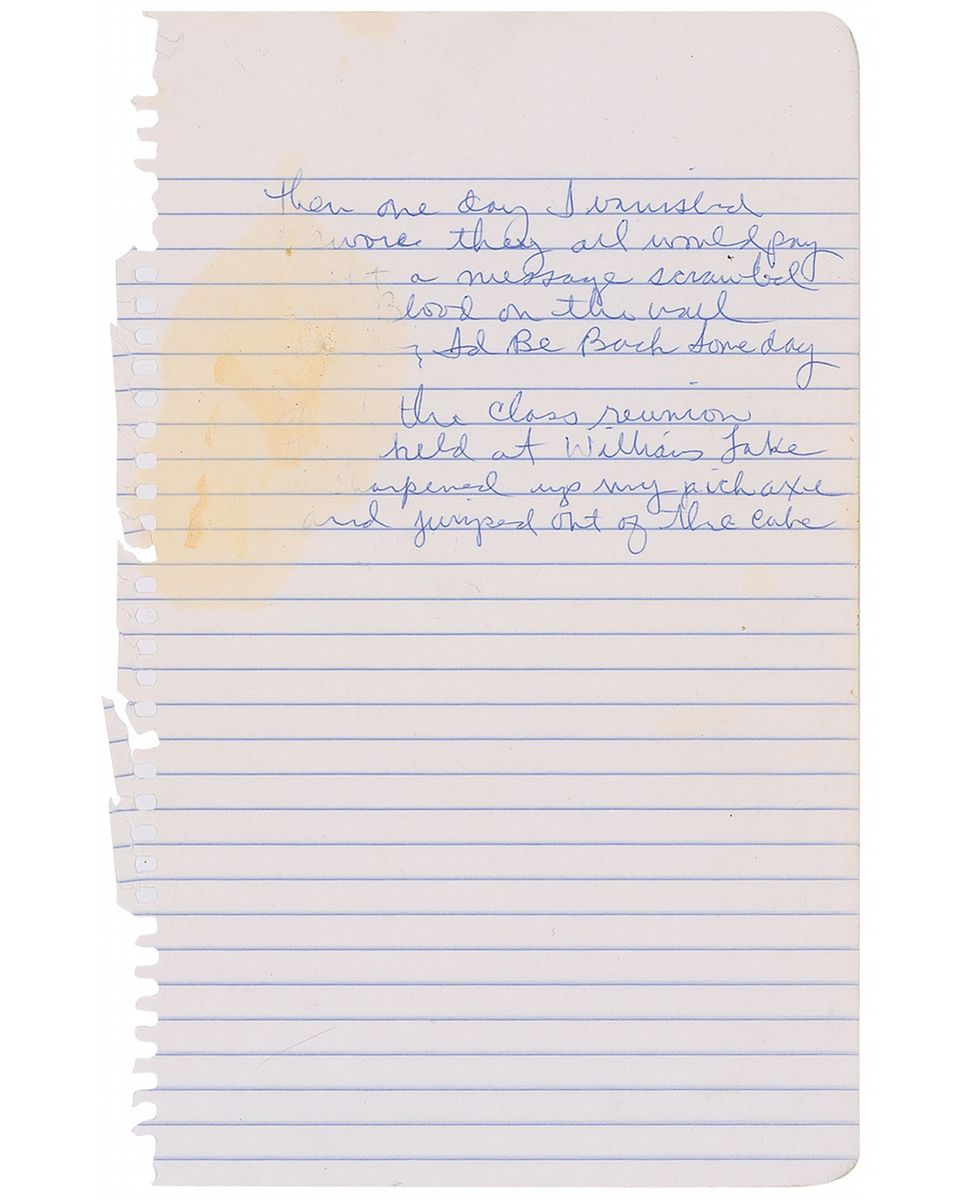 then one day I vanished
swore they all would pay
a message scrawled
Blood on the wall
I'd Be Back Someday
the class reunion
held at Williams Lake
sharpened up my pickaxe
and jumped out of the cake